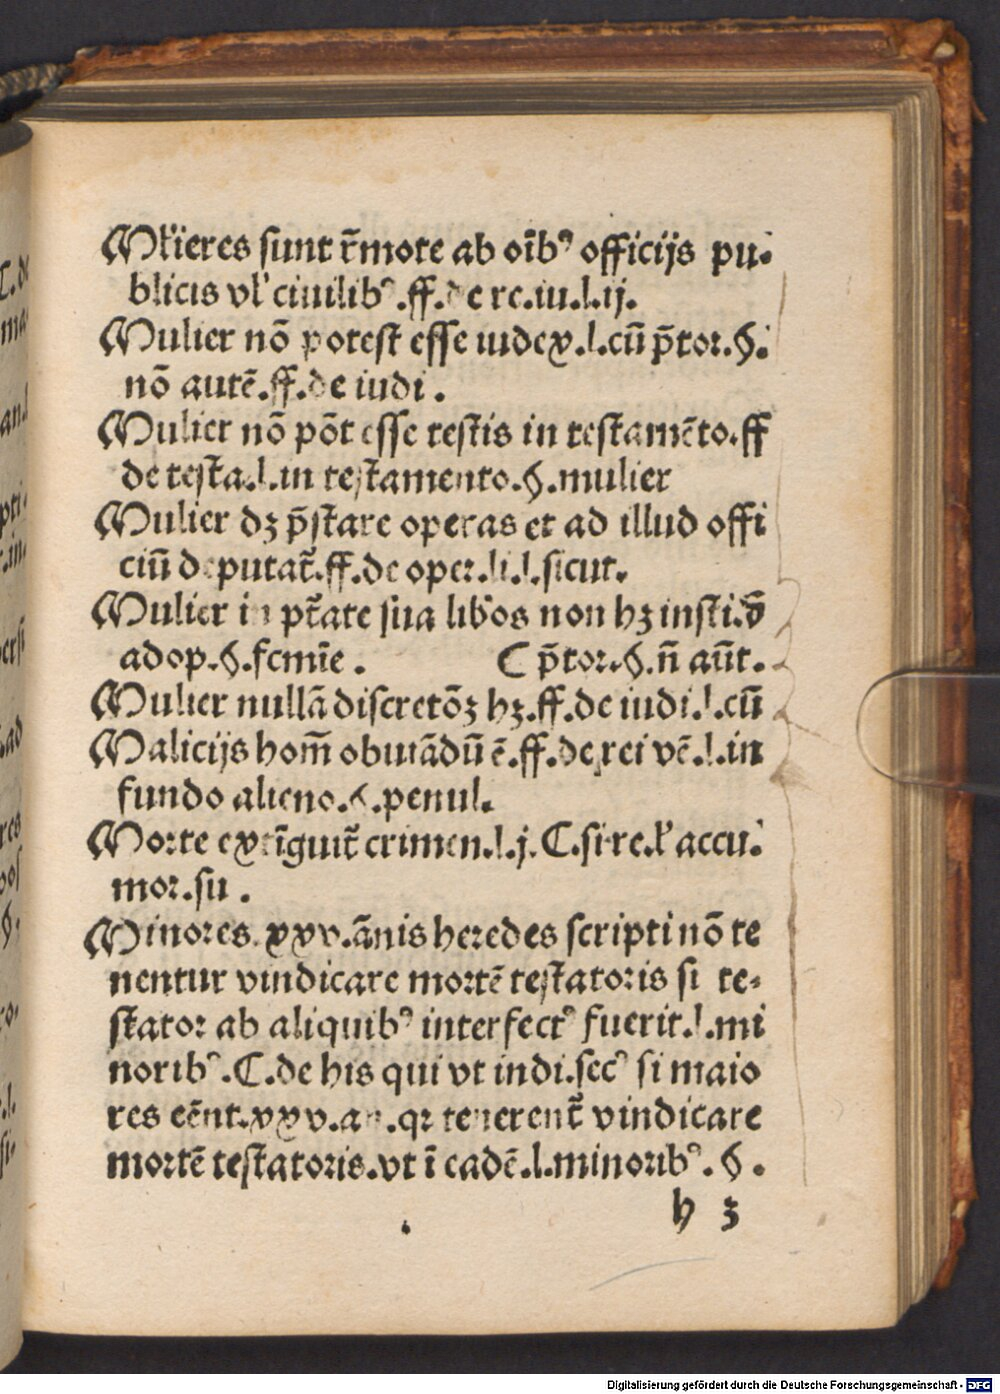 Ml'ieres sunt r̄mote ab oīb⁹ officijs pu-
blicis vl' ciuilib⁹.ff.de re.iu.l.ij.
Mulier nō potest esse iudex.l.cū p̄tor.§.
nō autē.ff.de iudi.
Mulier nō pōt esse testis in testamēto.ff
de testa.l.in testamento.§.mulier
Mulier dȝ p̄stare operas et ad illud offi
ciū deputat᷑.ff.de oper.li.l.sicut.
Mulier in ptāte sua lib'os non hȝ insti.d̄
adop.§.femīe. C p̄tor.§.n̄ aūt.
Mulier nullā discretōȝ hȝ.ff.de iudi.l.cū
Malicijs hom̄ obuiādū ē.ff.de rei vē.l.in
fundo alieno.§.penul.
Morte extīguit᷑ crimen.l.j.C.si re.l' accu.
mor.su.
Minores.xxv.ānis heredes scripti nō te
nentur vindicare mortē testatoris si te-
stator ab aliquib⁹ interfect⁹ fuerit.l.mi
norib⁹.C.de his qui vt indi.sec⁹ si maio
res eēnt.xxv.an.qr tenerent᷑ vindicare
mortē testatoris.vt ī eadē.l.minorib⁹.§.
h 3
Digitalisierung gefördert durch die Deutsche Forschungsgemeinschaft - DFG